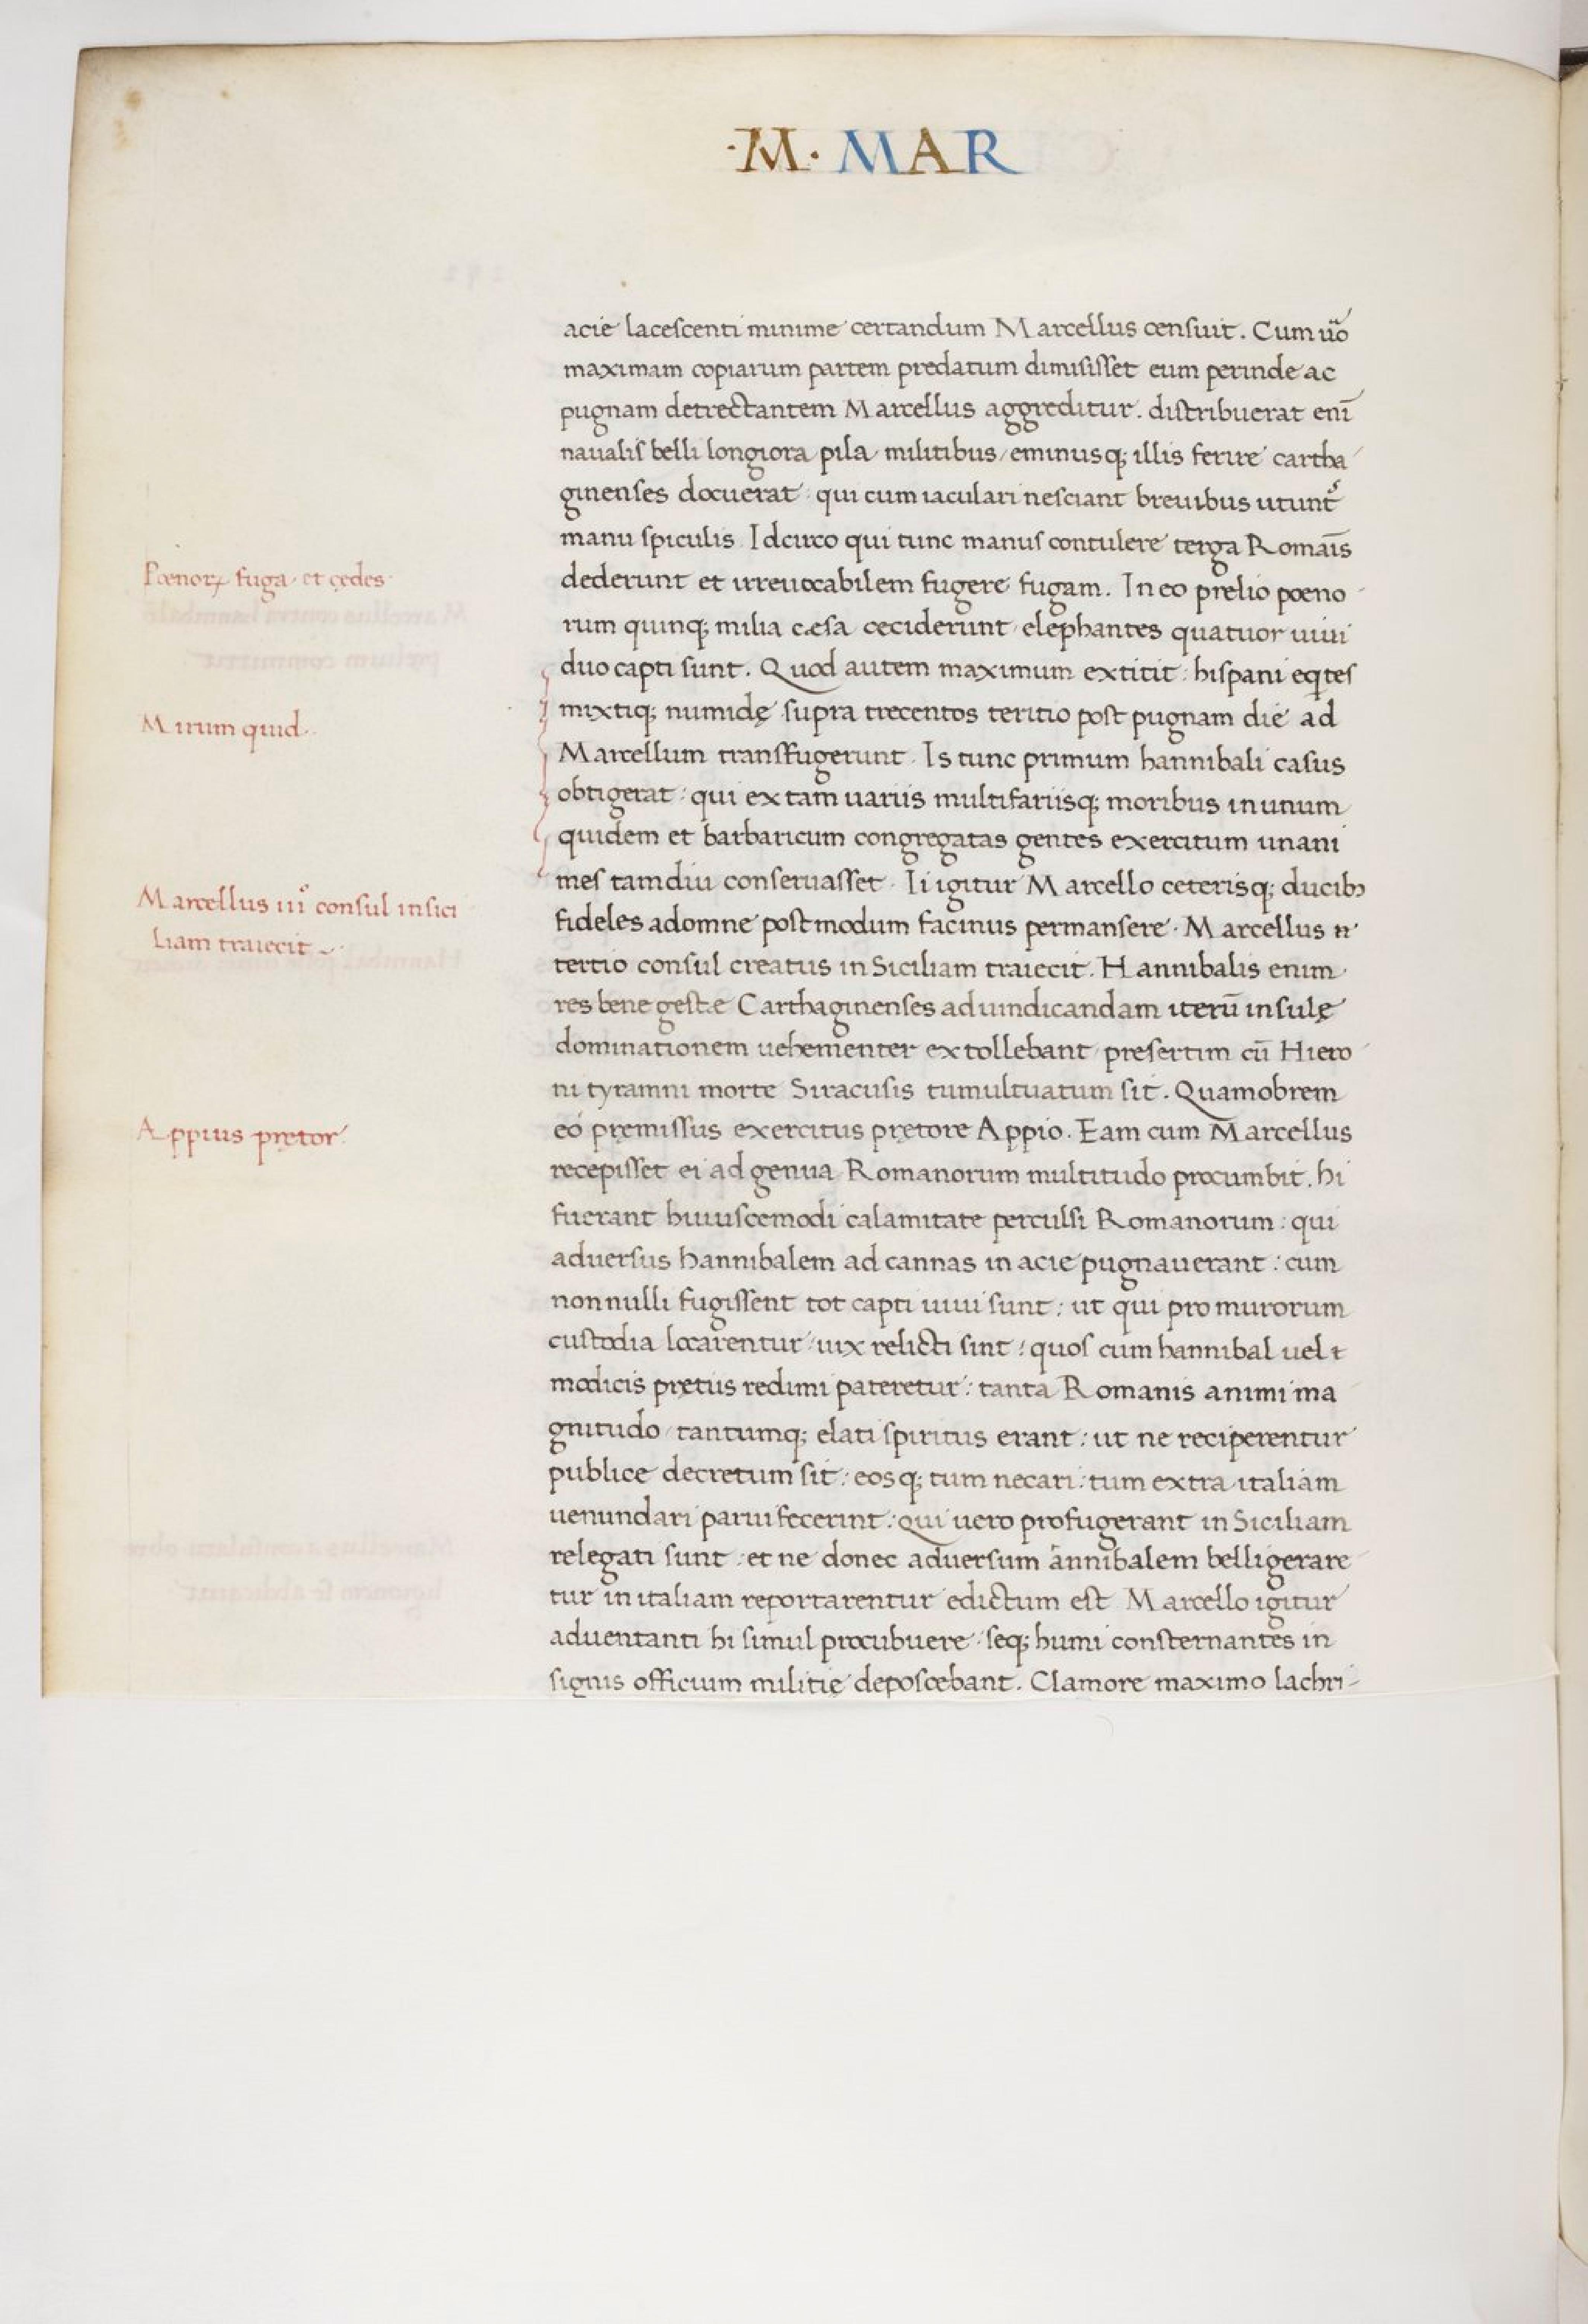 ·M· MAR
acie lacescenti minime certandum Marcellus censuit. Cum ũo
maximam copiarum partem predatum dimisisset eum perinde ac
pugnam detrectantem Marcellus aggreditur. distribuerat enī
naualis belli longiora pila militibus/ eminusq; illis ferire cartha
ginenses docuerat: qui cum iaculari nesciant breuibus utunt᷑
manu spiculis. Idcirco qui tunc manus contulere terga Romāis
dederunt et irreuocabilem fugere fugam. In eo prelio poeno
rum quinq; milia cæsa ceciderunt elephantes quatuor uiui
duo capti sunt. Quod autem maximum extitit: hispani eq̃tes
mixtiq; numidę supra trecentos teritio post pugnam die ad
Marcellum transfugerunt. Is tunc primum hannibali casus
obtigerat: qui ex tam uariis multifariisq; moribus in unum
quidem et barbaricum congregatas gentes exercitum unani
mes tamdiu conseruasset. Ii igitur Marcello ceterisq; ducibꝫ
fideles ad omne postmodum facinus permansere. Marcellus
tertio consul creatus in Siciliam traiecit. Hannibalis enim
res bene gestæ Carthaginenses ad uindicandam iterū insulę
dominationem uehementer extollebant presertim cū Hiero
ni tyramni morte Siracusis tumultuatum sit. Quamobrem
eó pręmissus exercitus pretore Appio. Eam cum Marcellus
recepisset ei ad genua Romanorum multitudo procumbit. hi
fuerant huiuscemodi calamitate perculsi Romanorum: qui
aduersus hannibalem ad cannas in acie pugnauerant: cum
nonnulli fugissent tot capti uiui sunt: ut qui pro murorum
custodia locarentur uix relicti sint: quos cum hannibal uel
modicis pretiis redimi pateretur: tanta Romanis animi ma
gnitudo/ tantumq; elati spiritus erant: ut ne reciperentur
publice decretum sit: eosq; tum necari: tum extra italiam
uenundari parui fecerint: qui uero profugerant in Siciliam
relegati sunt: et ne donec aduersum annibalem belligerare
tur in italiam reportarentur edictum est. Marcello igitur
aduentanti hi simul procubuere: seq; humi consternantes in
signis officium militię deposcebant. Clamore maximo lachri-
Pœnorꝝ fuga et cędes
Mirum quid.
Marcellus iii° consul in sici
liam traiecit
Appius pretor.